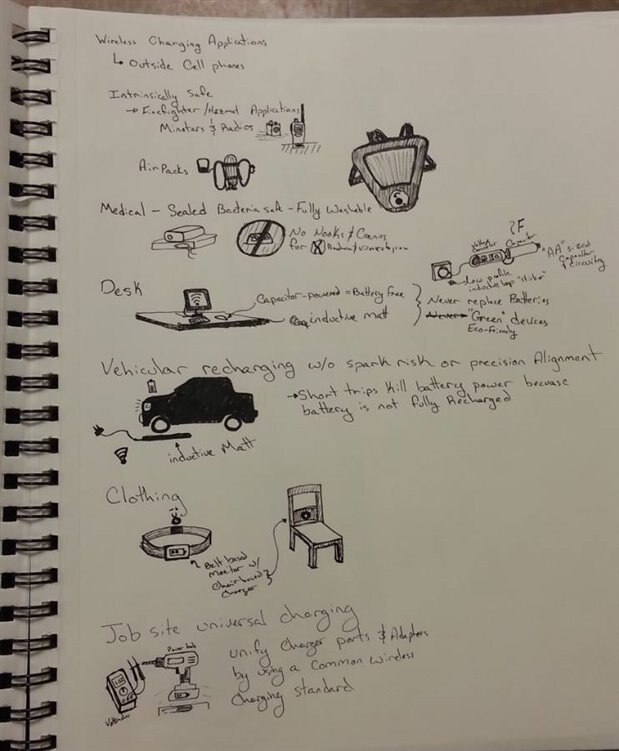 Wireless Charging Applications
↳ Outside Cell phones
Intrinsically Safe
→ Firefighter/Hazmat Applications
Minotors & Radios
AirPacks
Medical - Sealed Bacteria safe - Fully Washable
No Nooks & Crannies
for Bacteria/viruses to grow
?F
Voltage
Converter
Connector
"AA" sized
Capacitor
& circuitry
Low profile
inductive loop
Desk
Capacitor-powered = Battery Free
inductive matt
Never replace Batteries
Never "Green" devices
Eco-Friendly
Vehicular recharging w/o spark risk or precision Alignment
→ Short trips Kill battery power because
battery is not fully Recharged
inductive Matt
Clothing
Belt based
monitor w/
Chair based
Charger
Job site universal charging
Power tool
Voltmeter
unify Charger ports & Adapters
by using a Common wireless
Charging standard